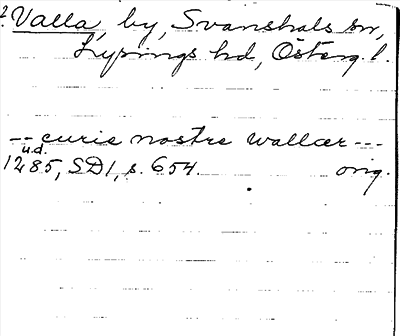 2. Valla, by, Svanshals sn,
Lysings hd, Österg. l.
-- curie nostre wallær ---
u.d.
1285, SD1, s. 654. orig.